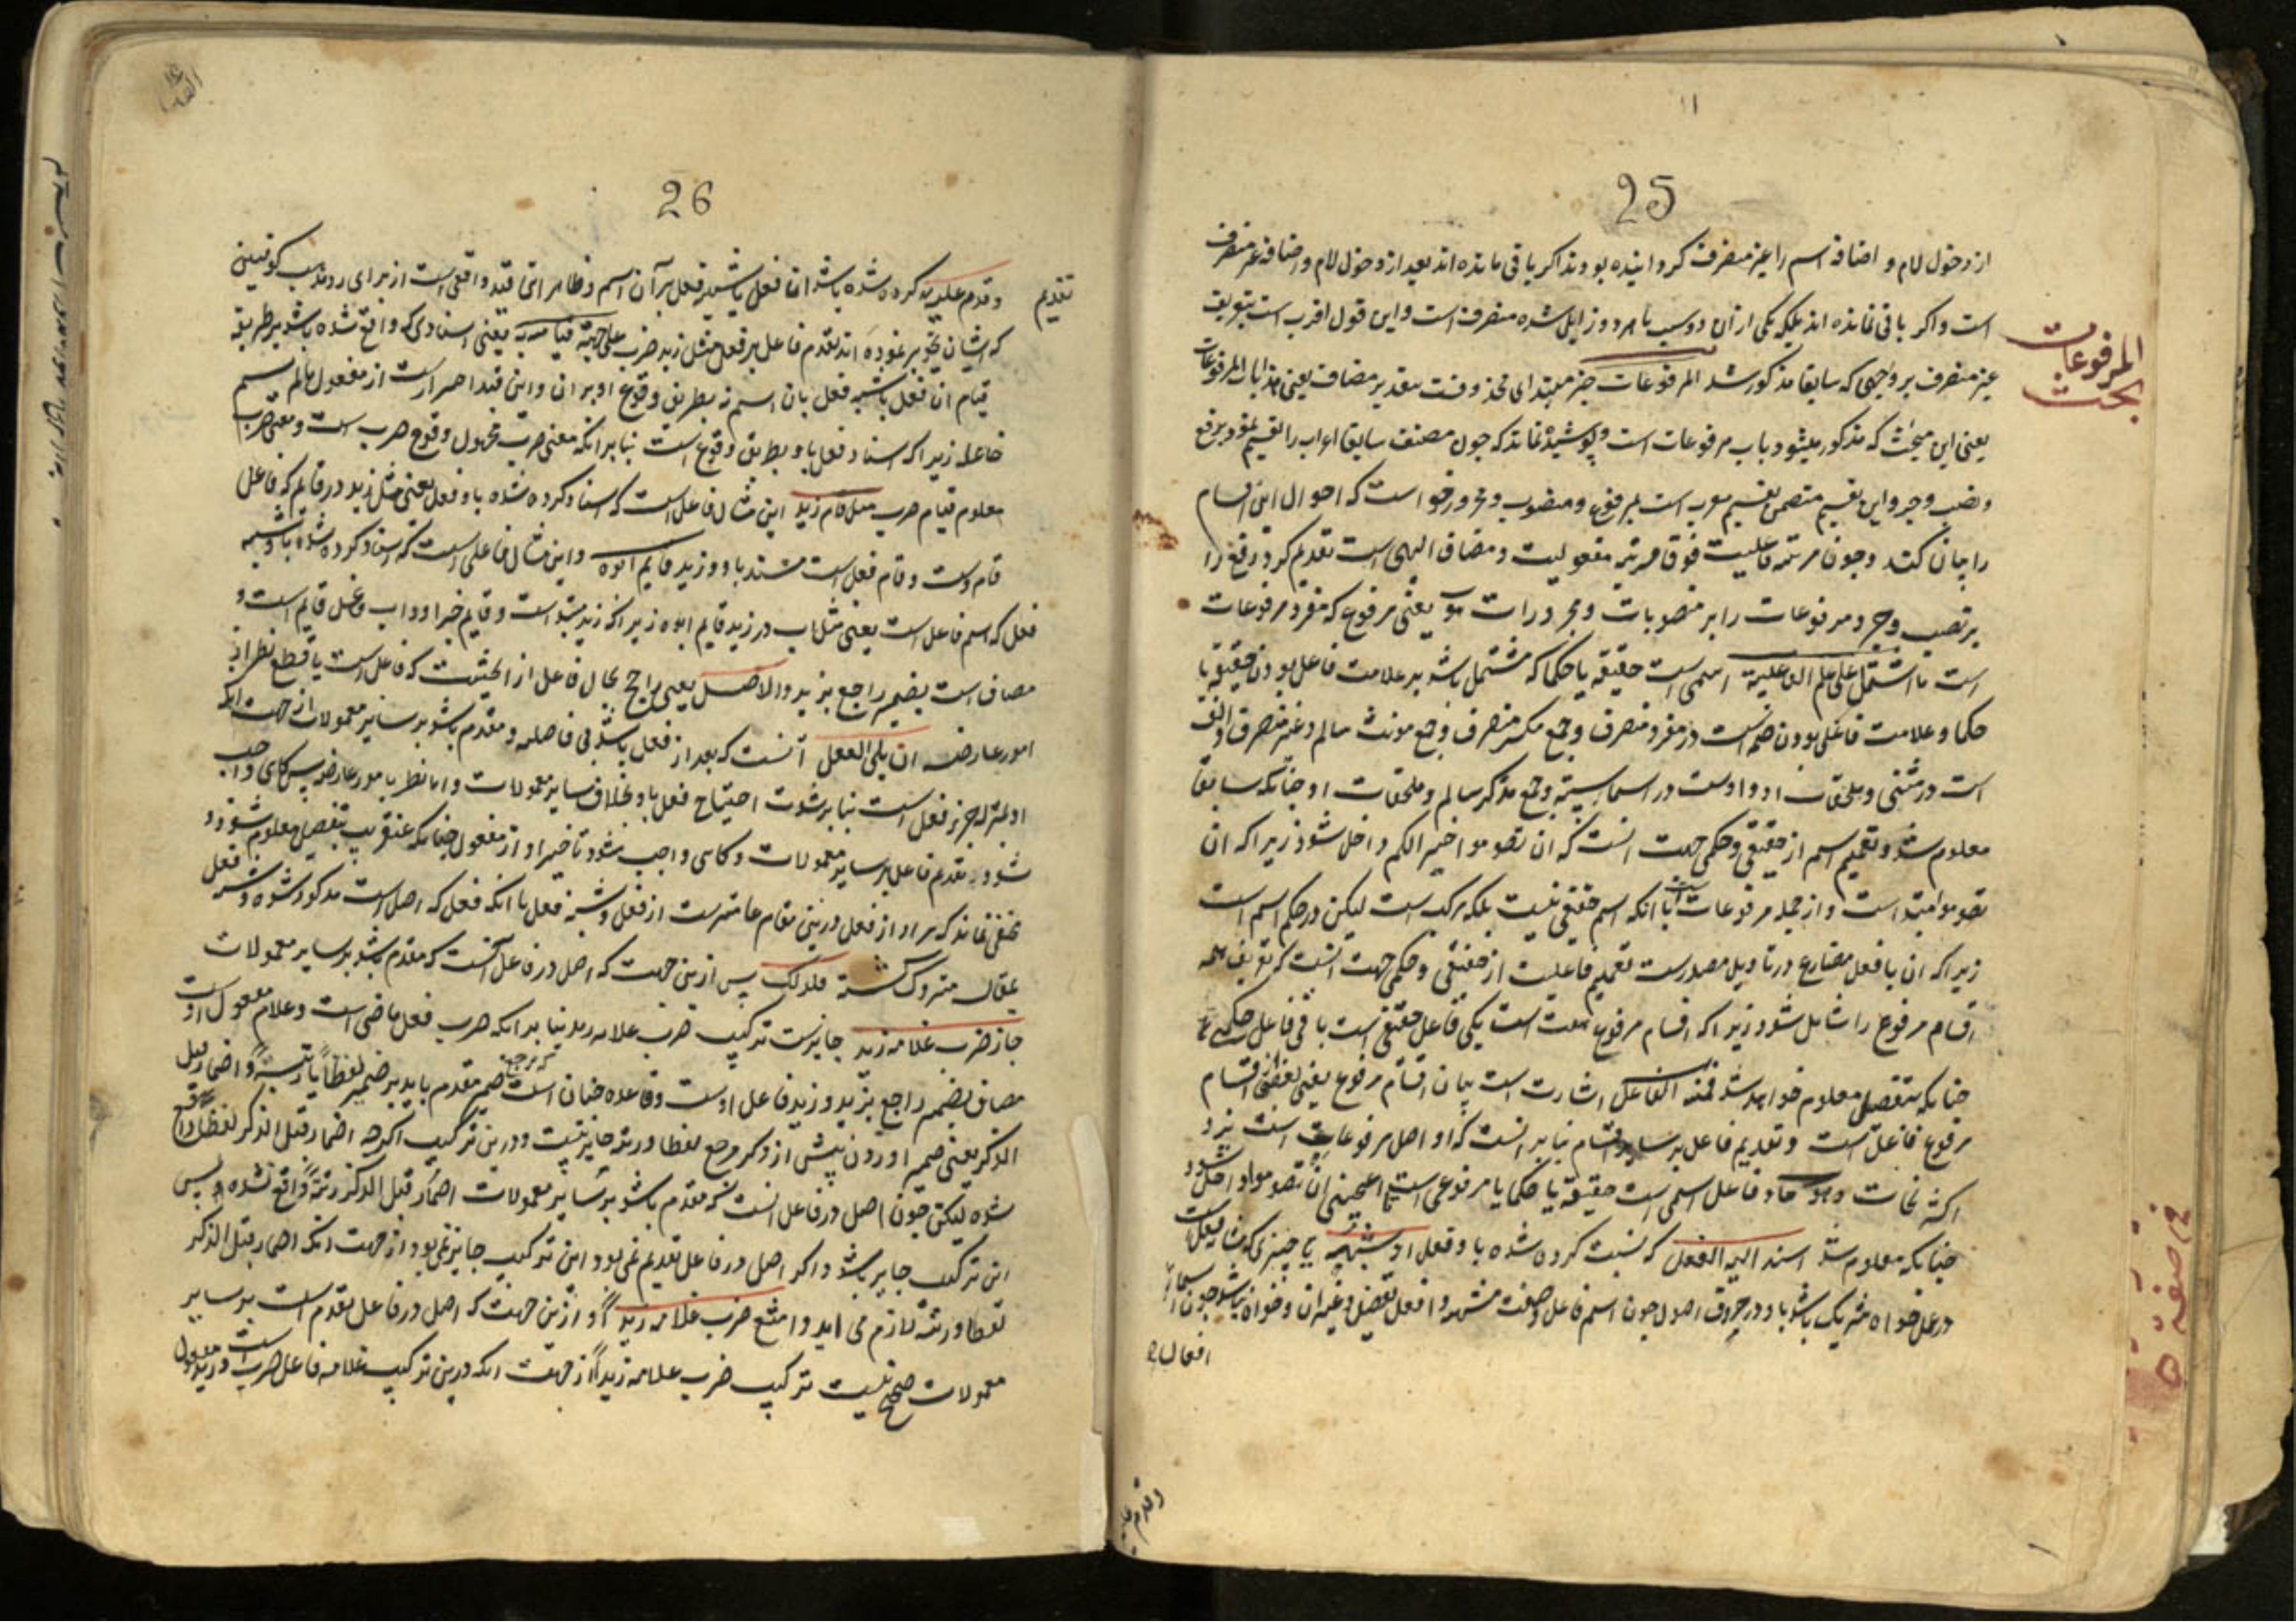 25
از دخول لام و اضافه اسم را غیر منصرف کردانیده بودند اکر باقی مانده اند بعد از دخول لام و اضافه غیر منصرف
است و اکر باقی نمانده اند بلکه یکی از ان دو سبب یا هر دو زایل شده منصرف است و این قول اقرب است بتعریف
غیر منصرف بر وجهی که سابقا مذکور شد المرفوعات خبر مبتدای محذوفست بتقدیر مضاف یعنی هذا باب المرفوعات
المرفوعات
بحث
یعنی این مبحث که مذکور میشود باب مرفوعات است و پوشیده نماند که چون مصنف سابقا اعراب را تقسیم نمود برفع
و نصب و جر و این تقسیم متضمن تقسیم معرب است بمرفوع و منصوب و مجرور خواست که احوال این اقسام
را بیان کند و چون مرتبه فاعلیت فوق مرتبه مفعولیت و مضاف الیهی است تقدیم کرد رفع را
بر نصب و جر و مرفوعات را بر منصوبات و مجرورات هو یعنی مرفوع که مفرد مرفوعات
است ما اشتمل علی علم الفاعلیة اسمی است حقیقة یا حکما که مشتمل باشد بر علامت فاعل بودن حقیقة یا
حکما و علامت فاعل بودن ضمه است در مفرد منصرف و جمع مکسر منصرف و جمع مونث سالم و غیر منصرف و الف
است در مثنی و ملحقات او و واوست در اسماء سته و جمع مذکر سالم و ملحقات او چنانکه سابق
معلوم شد و تعمیم اسم از حقیقی و حکمی جهت انست که ان تصوموا خیر الکم داخل شود زیرا که ان
تصوموا مبتداست و از جمله مرفوعات است با انکه اسم حقیقی نیست بلکه مرکب است لیکن در حکم اسم است
زیرا که ان با فعل مضارع در تاویل مصدرست تعمیم فاعلیت از حقیقی و حکمی جهت انست که تعریف همه
اقسام مرفوع را شامل شود زیرا که اقسام مرفوع هشت است یکی فاعل حقیقی است باقی فاعل حکمی
چنانکه بتفصیل معلوم خواهد شد فمنه الفاعل اشارت است ببیان اقسام مرفوع یعنی بعضی از اقسام
مرفوع فاعل است و تقدیم فاعل بر سایر اقسام بنا بر انست که او اصل مرفوعات است نزد
اکثر نحات وهو فاعل اسمی است حقیقة یا حکما یا مرفوعی است تا اعجبنی ان تصوموا داخل شود
چنانکه معلوم شد اسند الیه الفعل که نسبت کرده شده باو فعل او شبهه یا چیزی که مشابه فعل است
در عمل خواه شریک باشد باو در حروف اصول چون اسم فاعل و صفت مشبهه و افعل تفضیل و غیر ان و خواه نباشد چون اسماء
افعال
26
و قدم علیه کرده شده باشد اما فعل یا شبه فعل بر آن اسم و ظاهر انکه قید واقعی است از برای رد مذهب کوفیین
تقدیم
که ایشان تجویز نموده اند تقدم فاعل بر فعل مثل زید ضرب علی جهة قیامه به یعنی اسنادی که واقع شده باشد بر طریقه
قیام ان فعل یا شبه فعل بان اسم نه بطریق وقوع او بر ان و این قید احترازست از مفعول مالم یسم
فاعله زیرا که اسناد فعل باو بطریق وقوع است بنا بر انکه معنی ضرب مجهول وقوع ضرب است و معنی ضرب
معلوم قیام ضرب مثل قام زید این مثال فاعل است که اسناد کرده شده باو فعل یعنی مثل زید در قایم که فاعل
قام است و قام فعل است مسند باو و زید قایم ابوه و این مثال فاعلی است که اسناد کرده شده باو شبه
فعل که اسم فاعل است یعنی مثل اب در زید قایم ابوه زیرا که زید مبتداست و قایم خبر او و اب فاعل قایم است و
مضاف است بضمیر راجع بزید والاصل یعنی راجح بحال فاعل از حیثیت که فاعل است با قطع نظر از
امور عارضه ان یلی الفعل آنست که بعد از فعل باشد بی فاصله و مقدم باشد بر سایر معمولات از جهت انکه
او بمنزله جزء فعل است بنا بر شدت احتیاج فعل باو بخلاف سایر معمولات و اما نظر بامور عارضه پس کاهی واجب
شود تقدم فاعل بر سایر معمولات و کاهی واجب شود تاخیر او از مفعول چنانکه عنقریب بتفصیل معلوم شود و
مخفی نماند که مراد از فعل درینن مقام عامترست از فعل و شبه فعل با انکه فعل که اصل است مذکور شده و شبه فعل
متروک گشته فلذلک پس از ین جهت که اصل در فاعل آنست که مقدم باشد بر سایر معمولات
جاز ضرب غلامه زید جایزست ترکیب ضرب غلامه زید بنا بر انکه ضرب فعل ماضی است و غلام مفعول اوست
مضاف بضمیر راجع بزید و زید فاعل اوست و قاعده چنان است که مرجع ضمیر مقدم باید بر ضمیر لفظاً یا رتبة و اضمار قبل
الذکر یعنی ضمیر اوردن پیش از ذکر مرجع لفظا و رتبه جایز نیست و درین ترکیب اکرچه اضمار قبل الذکر لفظا واقع
شده لیکن چون اصل در فاعل انست که مقدم باشد بر سایر معمولات اضمار قبل الذکر رتبة واقع نشده پس
این ترکیب جایز باشد و اکر اصل در فاعل تقدیم نمی بود این ترکیب جایز نمی بود از جهت انکه اضمار قبل الذکر
لفظا و رتبة لازم می اید و امتنع ضرب غلامه زیدا و ازین جهت که اصل در فاعل تقدم است بر سایر
معمولات صحیح نیست ترکیب ضرب غلامه زیداً از جهت انکه درین ترکیب غلامه فاعل ضرب است و زید مفعول
وقدم علیه